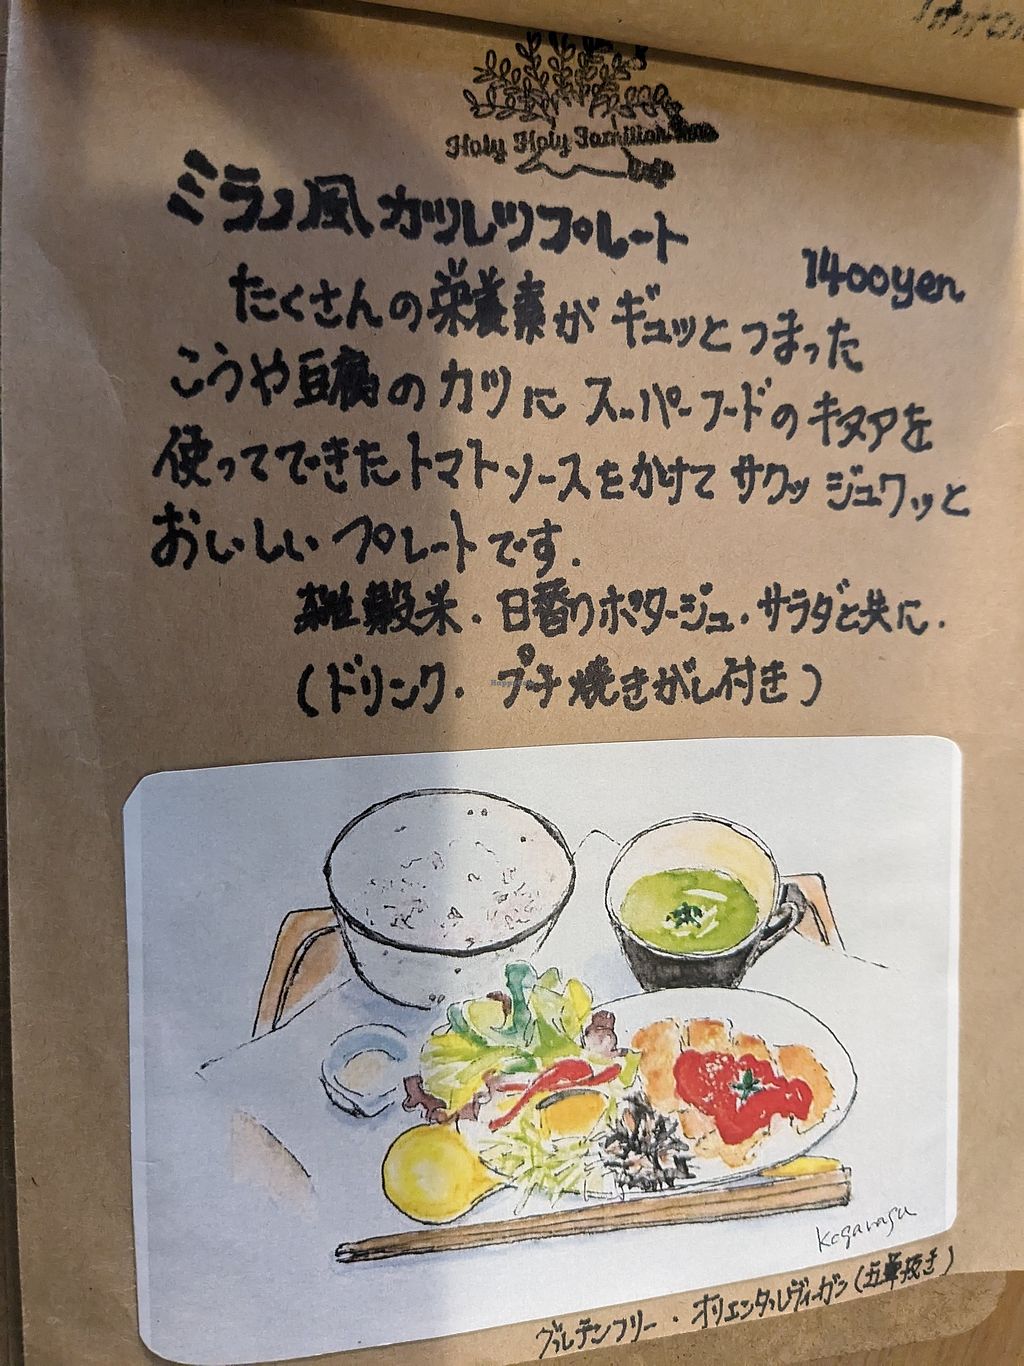 Holy Holy Familiar
ミラノ風カツレツプレート
1400yen
たくさんの栄養素がギュッとつまった
こうや豆腐のカツにスーパーフードのキヌアを
使ってできたトマトソースをかけてサクッジュワッと
おいしいプレートです.
雑穀米・日替りポタージュ・サラダと共に.
(ドリンク・プチ焼きがし付き)
Koganagu
グルテンフリー・オリエンタルヴィーガン(五葷抜き)